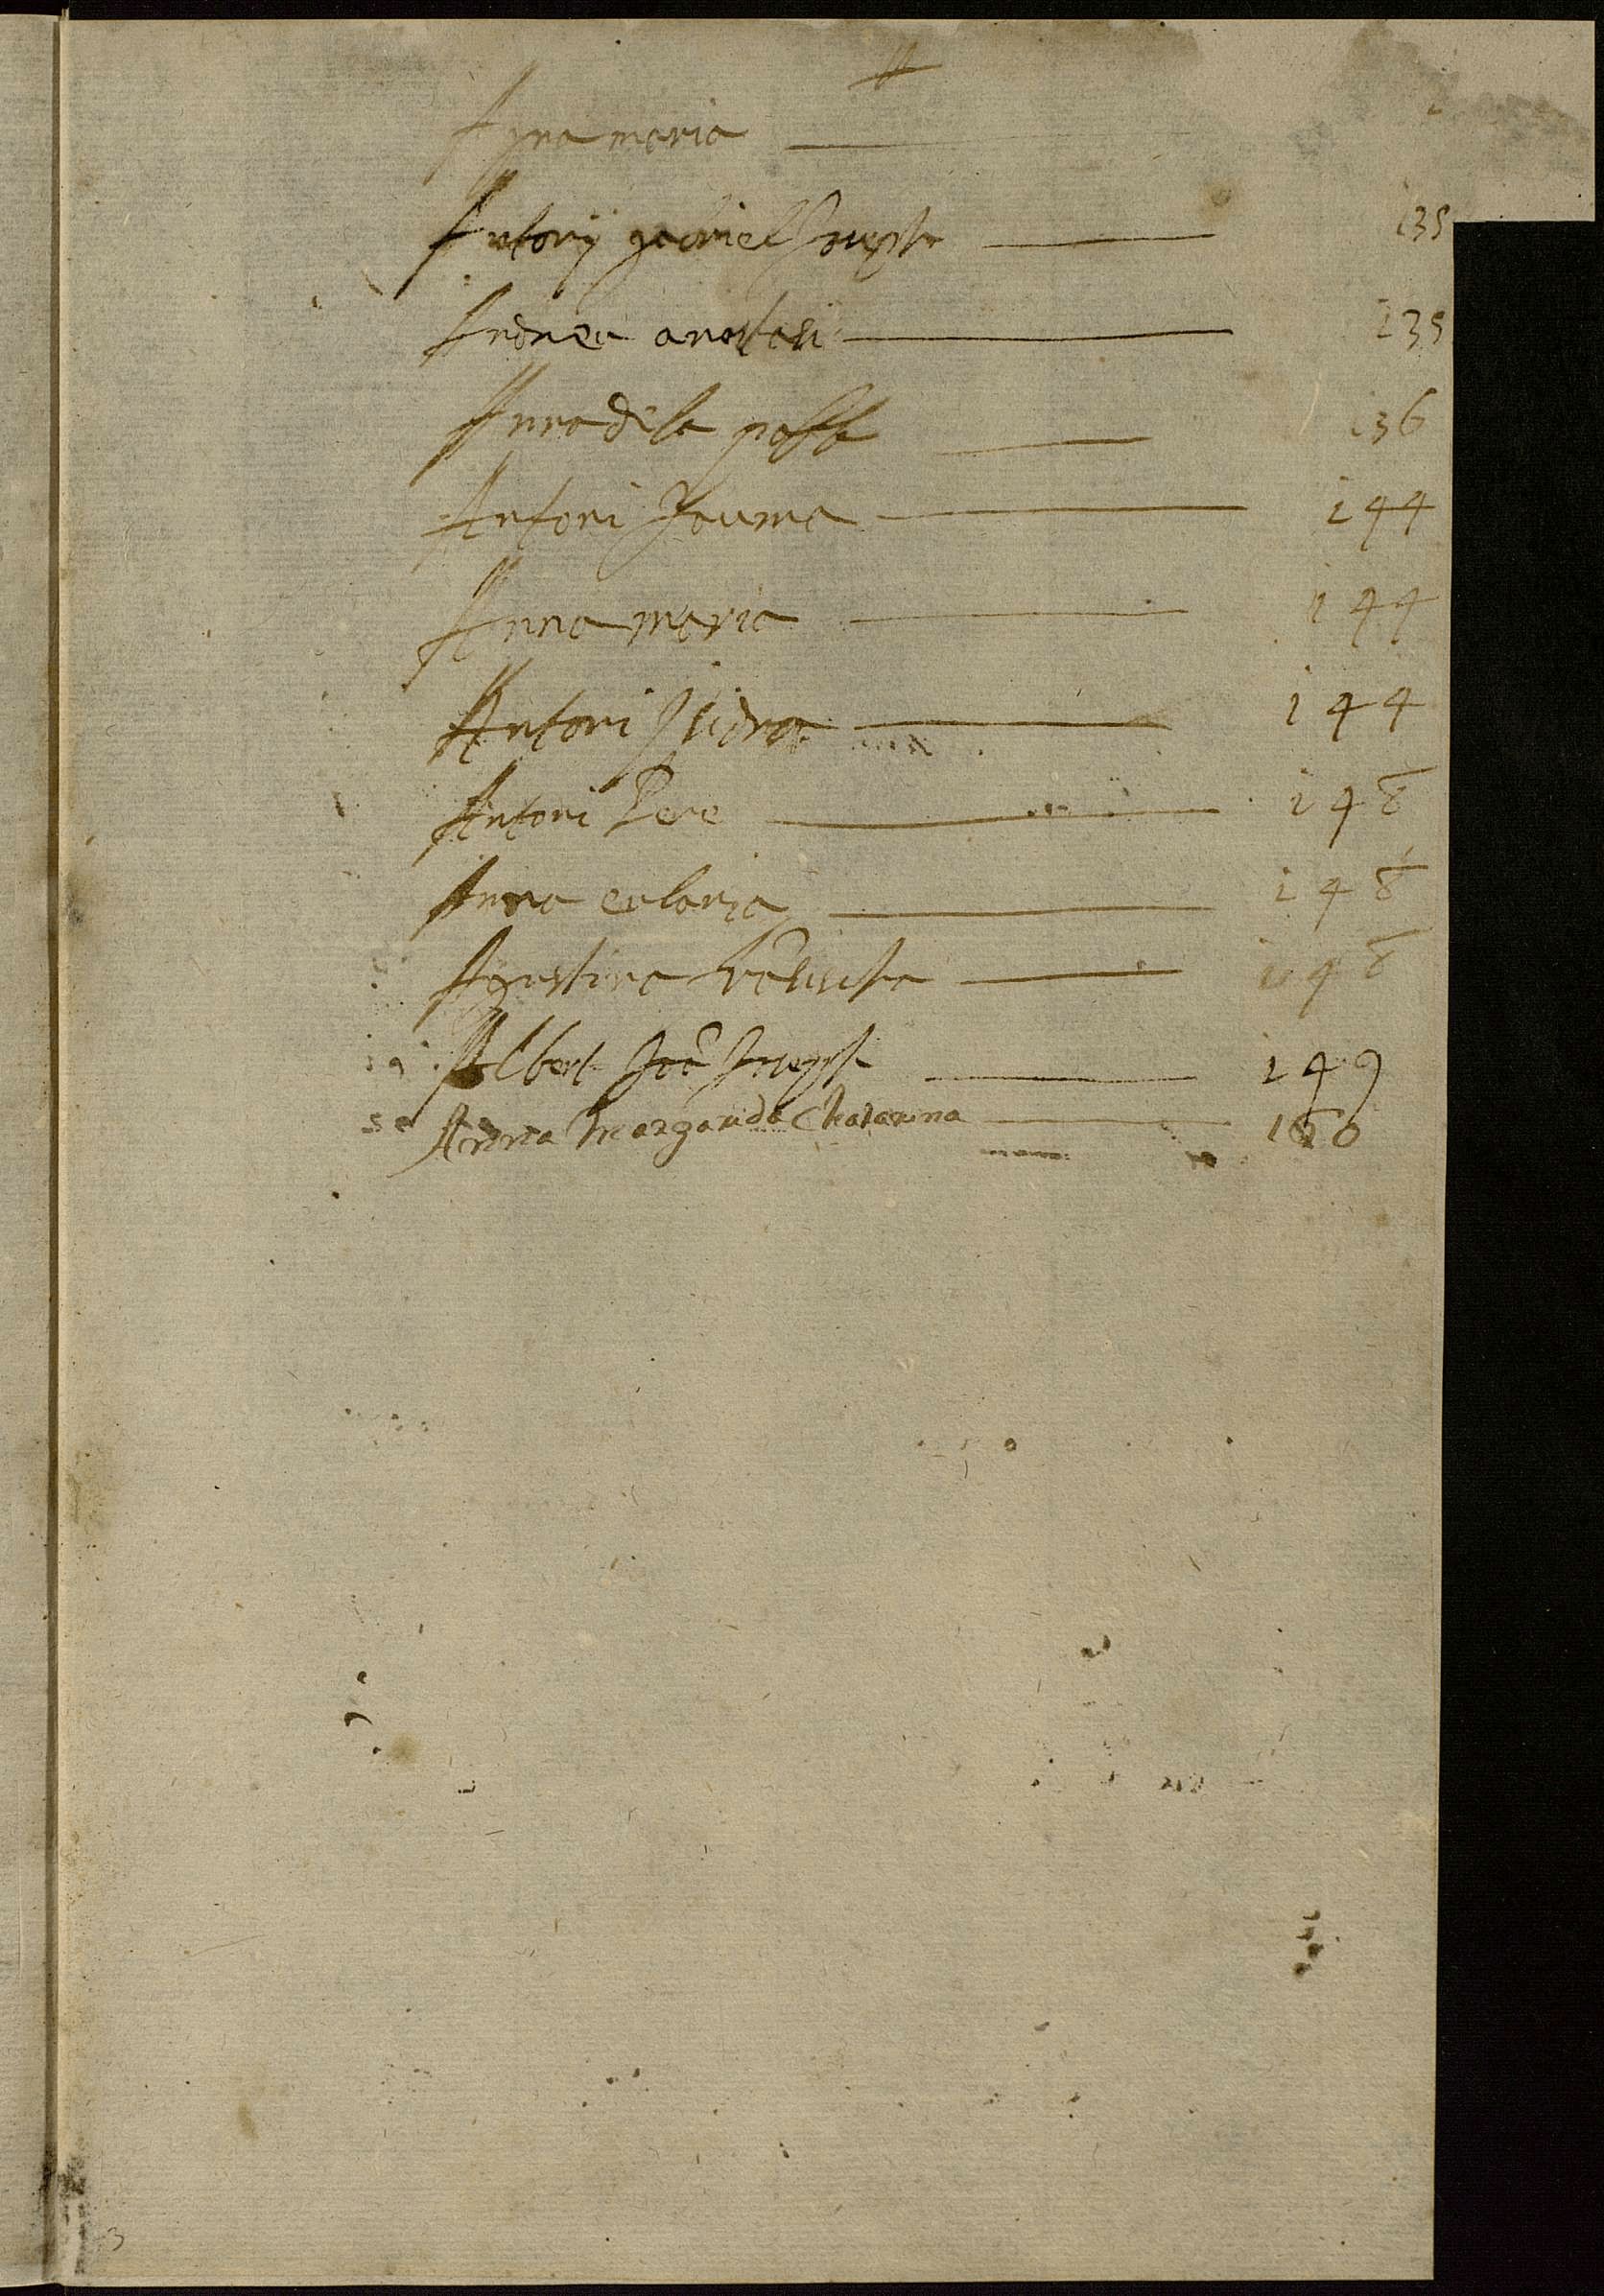 Anna maria
Antony gabriel Joseph 135
Andreu anastasi 135
Anna de la 136
Antoni Jaume 144
Anna maria 144
Antoni Isidro 144
Antoni Pere 148
Anna eularia 148
Agustina 148
Albert Joã Joseph 149
Anna Margarida Chatarina 160
3